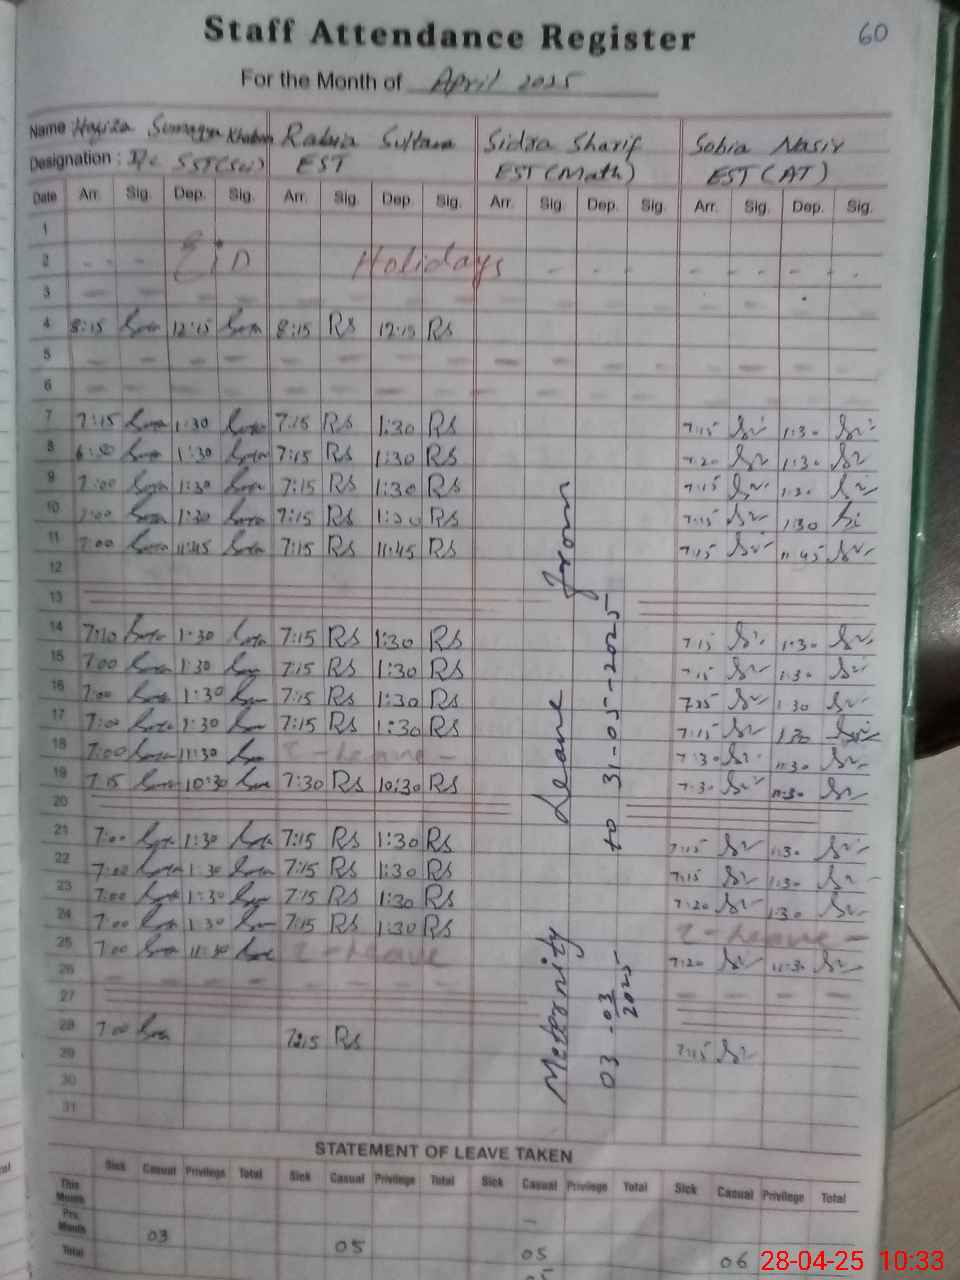 Staff Attendance Register
60
For the Month of April 2025
Name Khatoon Rabia Sultana Sidra Sharif Sobia Nasir
Designation : I/c SST(Sci) EST EST (Math) EST (AT)
Date Arr. Sig. Dep. Sig. Arr. Sig. Dep. Sig. Arr. Sig. Dep. Sig. Arr. Sig. Dep. Sig.
1
2 EiD Holidays
3
4 8:15 12:15 8:15 RS 12:15 RS
5
6
7 7:15 1:30 7:15 RS 1:30 RS 7:15 1:30
8 6:50 1:30 7:15 RS 1:30 RS 7:20 1:30
9 7:00 1:30 7:15 RS 1:30 RS 7:15 1:30
10 7:00 1:30 7:15 RS 1:30 RS 7:15 1:30
11 7:00 11:45 7:15 RS 11:45 RS 7:15 11:45
12
13
14 7:10 1:30 7:15 RS 1:30 RS 7:15 1:30
15 7:00 1:30 7:15 RS 1:30 RS 7:15 1:30
16 7:00 1:30 7:15 RS 1:30 RS 1:30
17 7:00 1:30 7:15 RS 1:30 RS 7:15 1:30
18 7:00 11:30 - Leave - 7:30 11:30
19 7:15 10:30 7:30 RS 10:30 RS 7:30
20
21 7:00 1:30 7:15 RS 1:30 RS 7:15 1:30
22 7:00 1:30 7:15 RS 1:30 RS 7:15 1:30
23 7:00 1:30 7:15 RS 1:30 RS 7:20 1:30
24 7:00 1:30 7:15 RS 1:30 RS - Leave -
25 7:00 11:30 - Leave 7:20 11:30
26
27
28 7:00 7:15 RS 7:15
29
30
31
Maternity Leave from
03-03-2025 to 31-05-2025
STATEMENT OF LEAVE TAKEN
Sick Casual Privilege Total Sick Casual Privilege Total Sick Casual Privilege Total Sick Casual Privilege Total
This Month
Pre. Month 03 05 –
Total 05 06
28-04-25 10:33